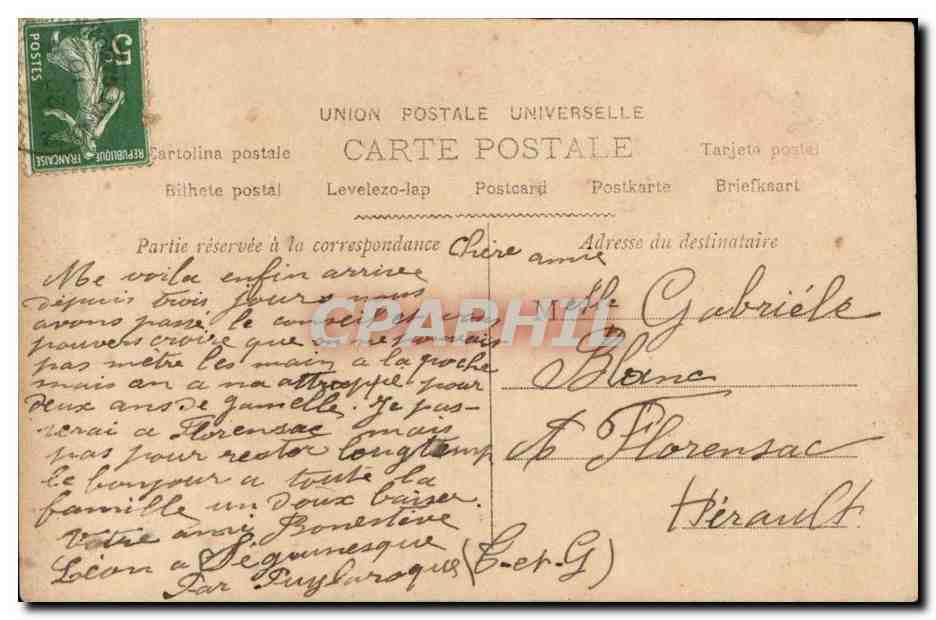 5c
POSTES
REPUBLIQUE FRANÇAISE
UNION POSTALE UNIVERSELLE
Cartolina postale CARTE POSTALE Tarjeta postal
Bilhete postal Levelezo-lap Postcard Postkarte Briefkaart
Partie réservée à la correspondance
Adresse du destinataire
Chère amie
Me voila enfin arrivee
depuis trois jours nous
avons passé le conseil et vous
pouvers croire que on ne
pas mètre les main a la poche
mais an a na attroppé pour
deux ans de gamelle. Je pas-
serai a Florensac mais
pas pour rester longtemp
le bonjour a toute la
famille un doux baiser
Votre ami Bonestève
Léon a Ségounesque
Par Puylaroque (T-et-G)
Melle Gabriéle
Blanc
A Florensac
Hérault
CPAPHIL